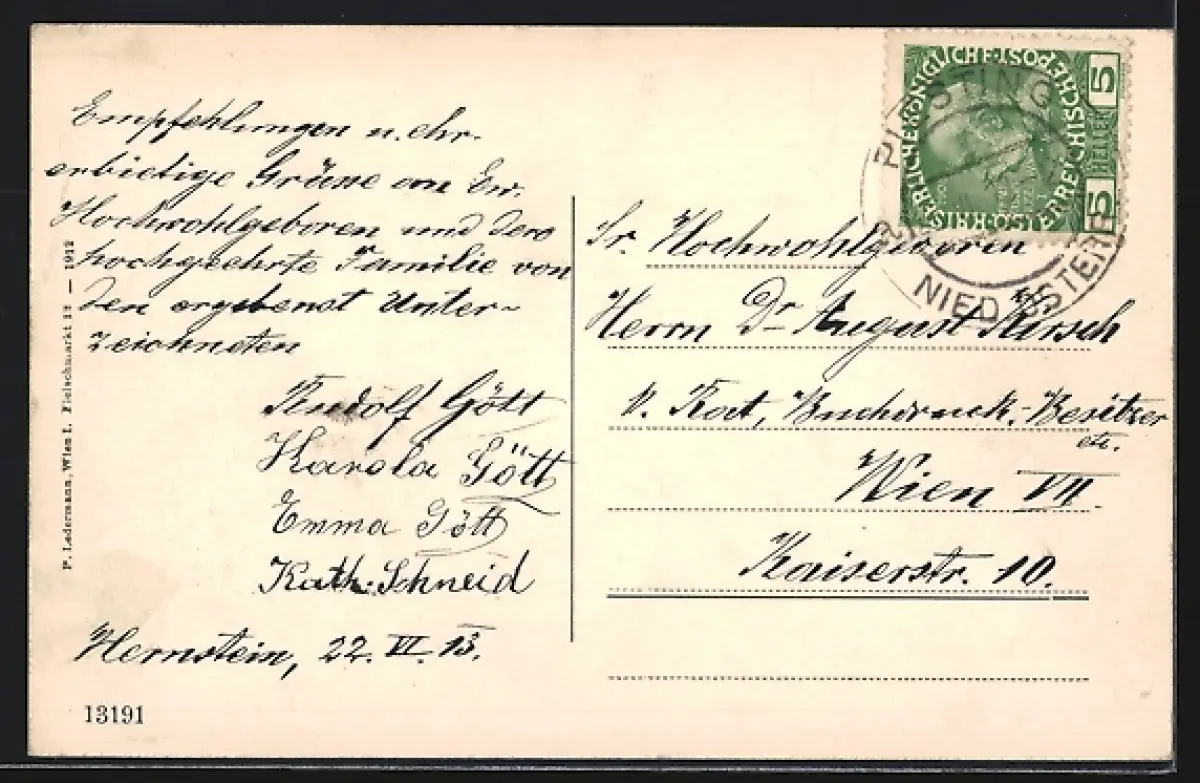 Empfehlungen u. ehr-
erbietige Grüsse an Ew.
Hochwohlgeboren und dero
hochgeehrte Familie von
den ergebenst Unter-
zeichneten
Rudolf Gött
Karola Gött
Emma Gött
Kath. Schneid
Hernstein, 22. VI. 13.
13191
P. Ledermann, Wien I. Fleischmarkt — 1912
KAISERLICHE KÖNIGLICHE ÖSTERREICHISCHE POST
5 HELLER 5
PIESTING
NIED. ÖSTERR
Sr. Hochwohlgeboren
Herrn Dr August Kirsch
k. Rat, Buchdruck.-Besitzer
etc.
Wien VII.
Kaiserstr. 10.